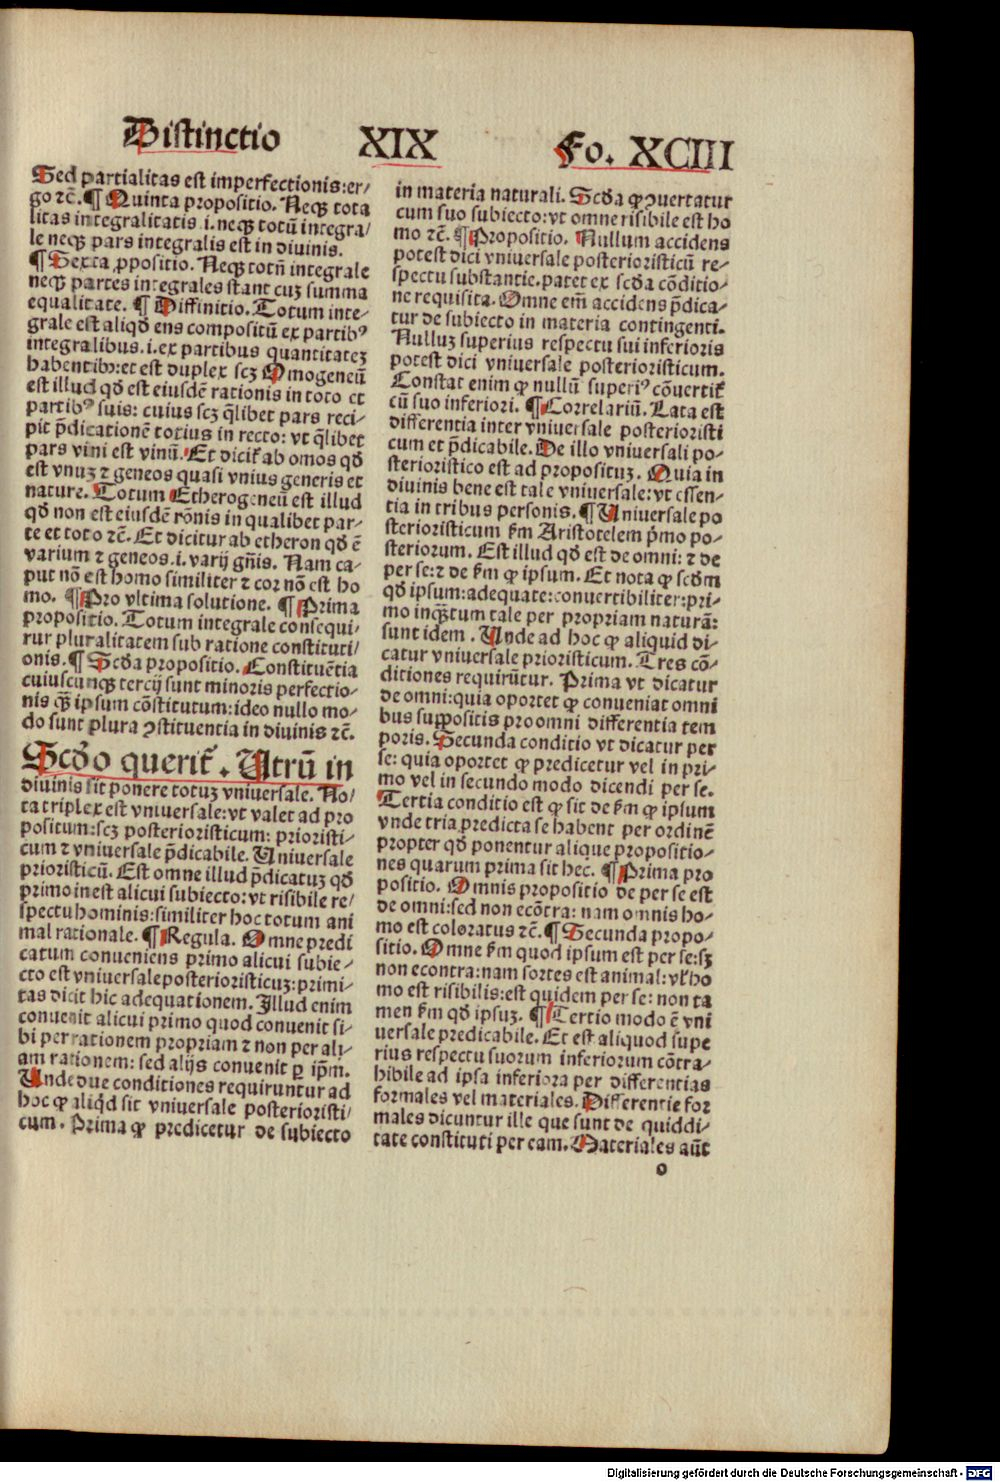 Distinctio XIX Fo. XCIII
Sed partialitas est imperfectionis: er/
go ⁊c̄. ¶ Quinta propositio. Neqꝫ tota
litas integralitatis .i. neqꝫ totū integra/
le neqꝫ pars integralis est in diuinis.
¶ Sexta ꝓpositio. Neqꝫ totū integrale
neqꝫ partes integrales stant cuꝫ summa
equalitate. ¶ Diffinitio. Totum inte-
grale est aliqđ ens compositū ex partibꝰ
integralibus .i. ex partibus quantitateꝫ
habentibꝰ: et est duplex scꝫ Omogeneū
est illud qđ est eiusdē rationis in toto et
partibꝰ suis: cuius scꝫ q̄libet pars reci-
pit p̄dicationē totius in recto: vt q̄libet
pars vini est vinū. Et dicit̄ ab omos qđ
est vnuꝫ ⁊ geneos quasi vnius generis et
nature. Totum Etherogeneū est illud
qđ non est eiusdē rōnis in qualibet par-
te et toto ⁊c̄. Et dicitur ab etheron qđ ē
varium ⁊ geneos .i. varij gn̄is. Nam ca-
put nō est homo similiter ⁊ cor nō est ho
mo. ¶ Pro vltima solutione. ¶ Prima
propositio. Totum integrale consequi-
tur pluralitatem sub ratione constituti/
onis. ¶ Scđa propositio. Constituētia
cuiuscunqꝫ tercij sunt minoris perfectio-
nis qꝫ̄ ipsum cōstitutum: ideo nullo mo-
do sunt plura ꝯstituentia in diuinis ⁊c̄.
Scđo querit̄. Utrū in
diuinis sit ponere totuꝫ vniuersale. No/
ta triplex est vniuersale: vt valet ad pro
positum: scꝫ posterioristicum: prioristi-
cum ⁊ vniuersale p̄dicabile. Uniuersale
prioristicū. Est omne illud p̄dicatuꝫ qđ
primo inest alicui subiecto: vt risibile re/
spectu hominis: similiter hoc totum ani
mal rationale. ¶ Regula. Omne predi
catum conueniens primo alicui subie-
cto est vniuersale posterioristicuꝫ: primi-
tas dicit hic adequationem. Illud enim
conuenit alicui primo quod conuenit si-
bi per rationem propriam ⁊ non per ali-
am rationem: sed alijs conuenit ꝑ ip̄m.
Unde due conditiones requiruntur ad
hoc ꝙ aliqđ sit vniuersale posterioristi/
cum. Prima ꝙ predicetur de subiecto
in materia naturali. Scđa ꝙ ꝯuertatur
cum suo subiecto: vt omne risibile est ho
mo ⁊c̄. ¶ Propositio. Nullum accidens
potest dici vniuersale posterioristicū re-
spectu substantie. patet ex scđa cōditio-
ne requisita. Omne em̄ accidens p̄dica-
tur de subiecto in materia contingenti.
Nulluꝫ superius respectu sui inferioris
potest dici vniuersale posterioristicum.
Constat enim ꝙ nullū superiꝰ cōuertit̄
cū suo inferiori. ¶ Correlariū. Lata est
differentia inter vniuersale posterioristi
cum et p̄dicabile. De illo vniuersali po-
sterioristico est ad proposituꝫ. Quia in
diuinis bene est tale vniuersale: vt essen-
tia in tribus personis. ¶ Uniuersale po
sterioristicum fm̄ Aristotelem p̄mo po-
steriorum. Est illud qđ est de omni: ⁊ de
per se: ⁊ de fm̄ ꝙ ipsum. Et nota ꝙ scđm
qđ ipsum: adequate: conuertibiliter: pri-
mo inqꝫ̄tum tale per propriam naturā:
sunt idem. Unde ad hoc ꝙ aliquid di-
catur vniuersale prioristicum. Tres cō-
ditiones requirūtur. Prima vt dicatur
de omni: quia oportet ꝙ conueniat omni
bus suppositis pro omni differentia tem
poris. Secunda conditio vt dicatur per
se: quia oportet ꝙ predicetur vel in pri-
mo vel in secundo modo dicendi per se.
Tertia conditio est ꝙ sit de fm̄ ꝙ ipsum
vnde tria predicta se habent per ordinē
propter qđ ponentur alique propositio-
nes quarum prima sit hec. ¶ Prima pro
positio. Omnis propositio de per se est
de omni: sed non ecōtra: nam omnis ho-
mo est coloratus ⁊c̄. ¶ Secunda propo-
sitio. Omne fm̄ quod ipsum est per se: sꝫ
non econtra: nam sortes est animal: vl̓ ho
mo est risibilis: est quidem per se: non ta
men fm̄ qđ ipsuꝫ. ¶ Tertio modo ē vni
uersale predicabile. Et est aliquod supe
rius respectu suorum inferiorum cōtra-
hibile ad ipsa inferiora per differentias
formales vel materiales. Differentie for
males dicuntur ille que sunt de quiddi-
tate constituti per eam. Materiales aūt
o
Digitalisierung gefördert durch die Deutsche Forschungsgemeinschaft - DFG